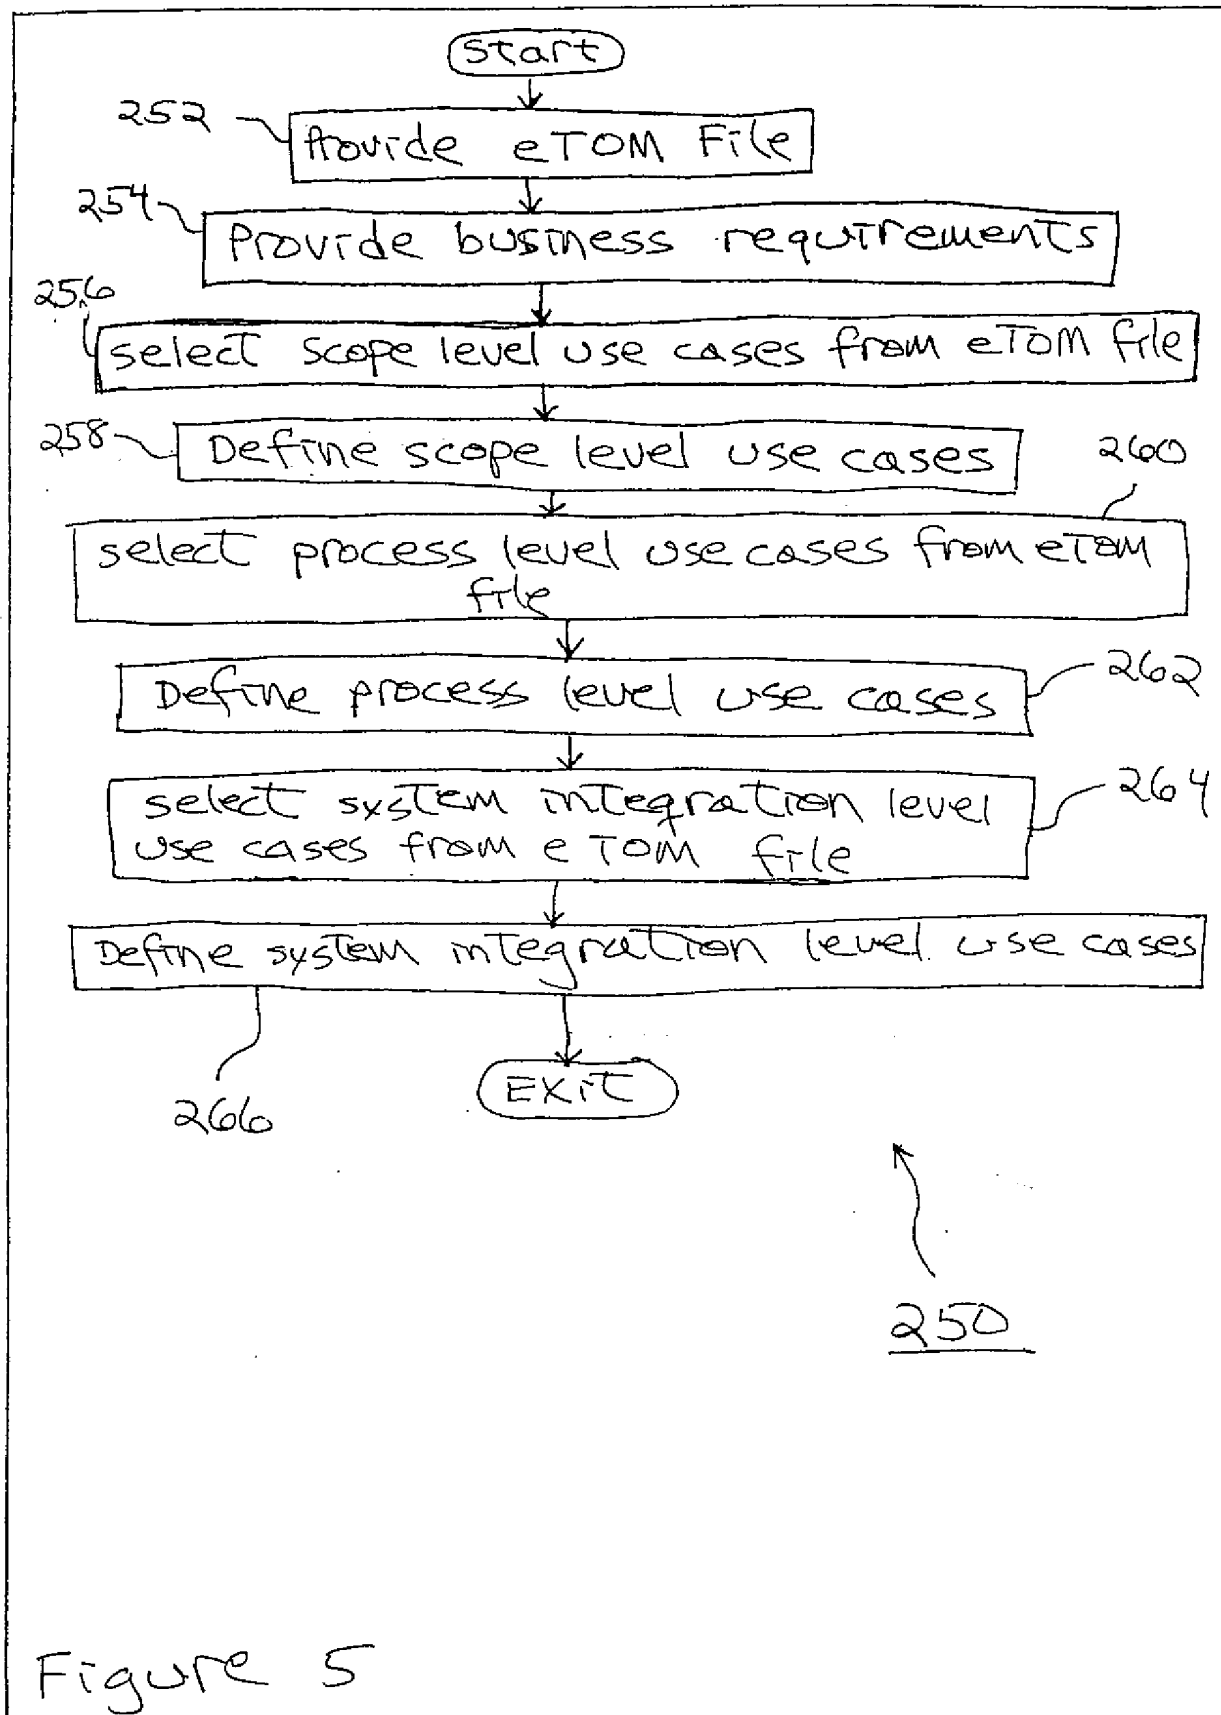 Start
252
Provide eTOM File
254
Provide business requirements
256
select scope level use cases from eTOM file
258
Define scope level use cases
260
select process level use cases from eTOM
file
Define process level use cases
262
select system integration level
use cases from eTOM file
264
Define system integration level use cases
266
Exit
250
Figure 5